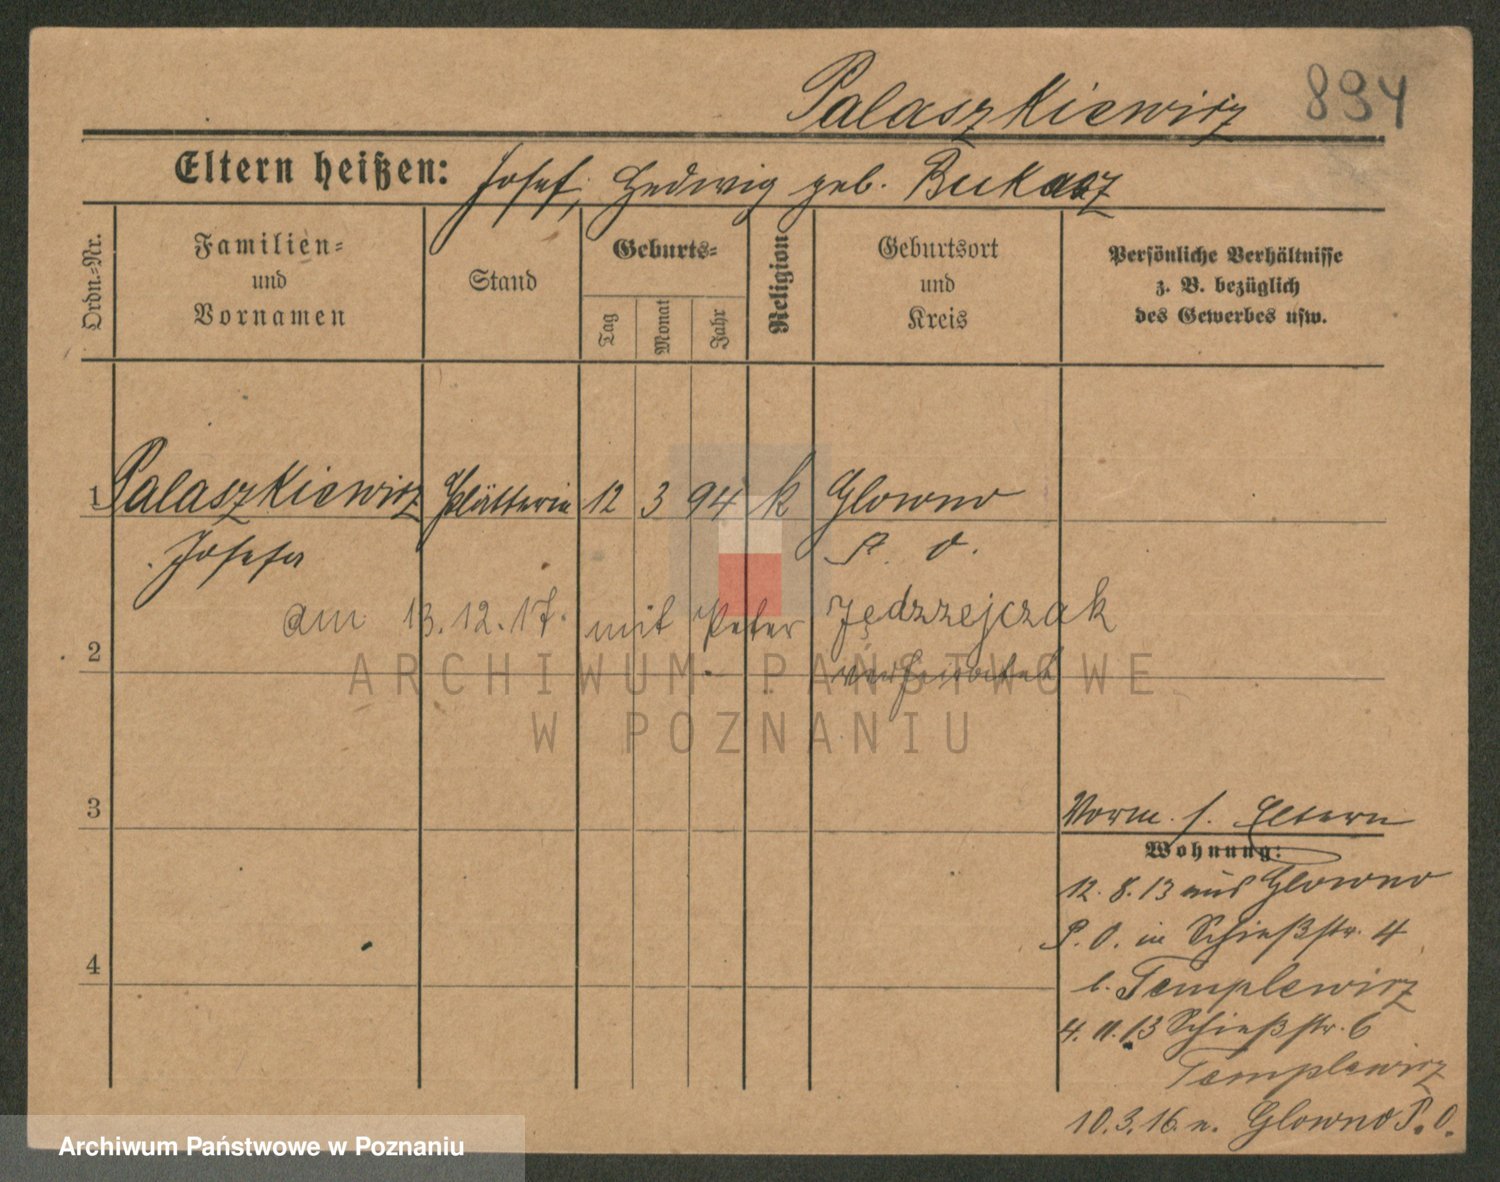 Palaszkiewicz 894
Eltern heißen: Josef, Hedwig geb. Bukasz
Ordn.-Nr.
Familien-
und
Vornamen
Stand
Geburts-
Tag
Monat
Jahr
Religion
Geburtsort
und
Kreis
Persönliche Verhältnisse
z. B. bezüglich
des Gewerbes usw.
1 Palaszkiewicz Plätterin 12 3 94 k Glowno
Josefa P. O.
am 13.12.17. mit Peter Jędrzejczak
2 verheiratet
ARCHIWUM PAŃSTWOWE
W POZNANIU
3
Vorm. s. Eltern
Wohnung:
12. 8. 13 aus Glowno
P. O. in Schießstr. 4
4
b. Templewicz
4. 11. 13 Schießstr. 6
Templewicz
10. 3. 16. n. Glowno P. O.
Archiwum Państwowe w Poznaniu